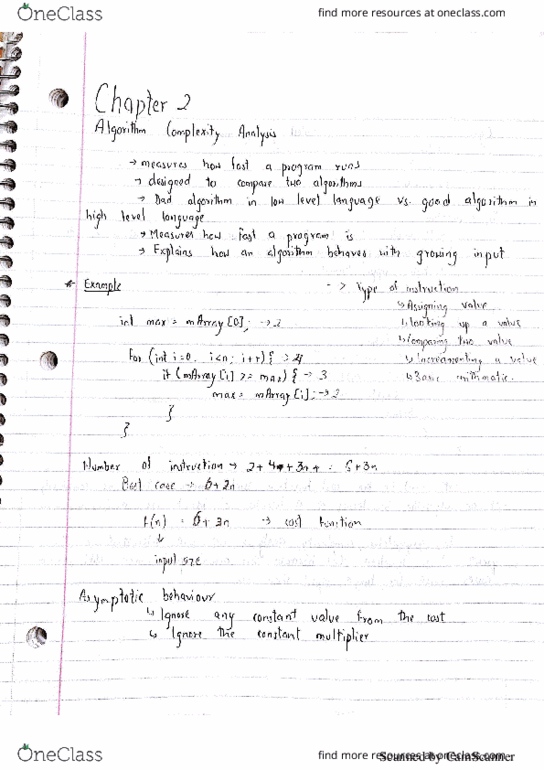 OneClass
find more resources at oneclass.com
Chapter 2
Algorithm Complexity Analysis
→ measures how fast a program runs
→ designed to compare two algorithms
→ Bad algorithm in low level language vs. good algorithm in
high level language
→ Measures how fast a program is
→ Explains how an algorithm behaves with growing input
* Example
-> Type of instruction
↳ Assigning value
↳ looking up a value
↳ comparing two value
↳ increamenting a value
↳ Basic arithmatic.
int max = mArray [0]; → 2
For (int i=0, i<n; i++) {
if (mArray [i] >= max) { → 3
max = mArray [i]; → 2
}
}
Number of instruction →
Best case → 6+2n
f(n) = 6+3n → cost function
↓
input size
Asymptotic behaviour
↳ Ignore any constant value from the cost
↳ Ignore the constant multiplier
OneClass
find more resources at oneclass.com
Scanned by CamScanner